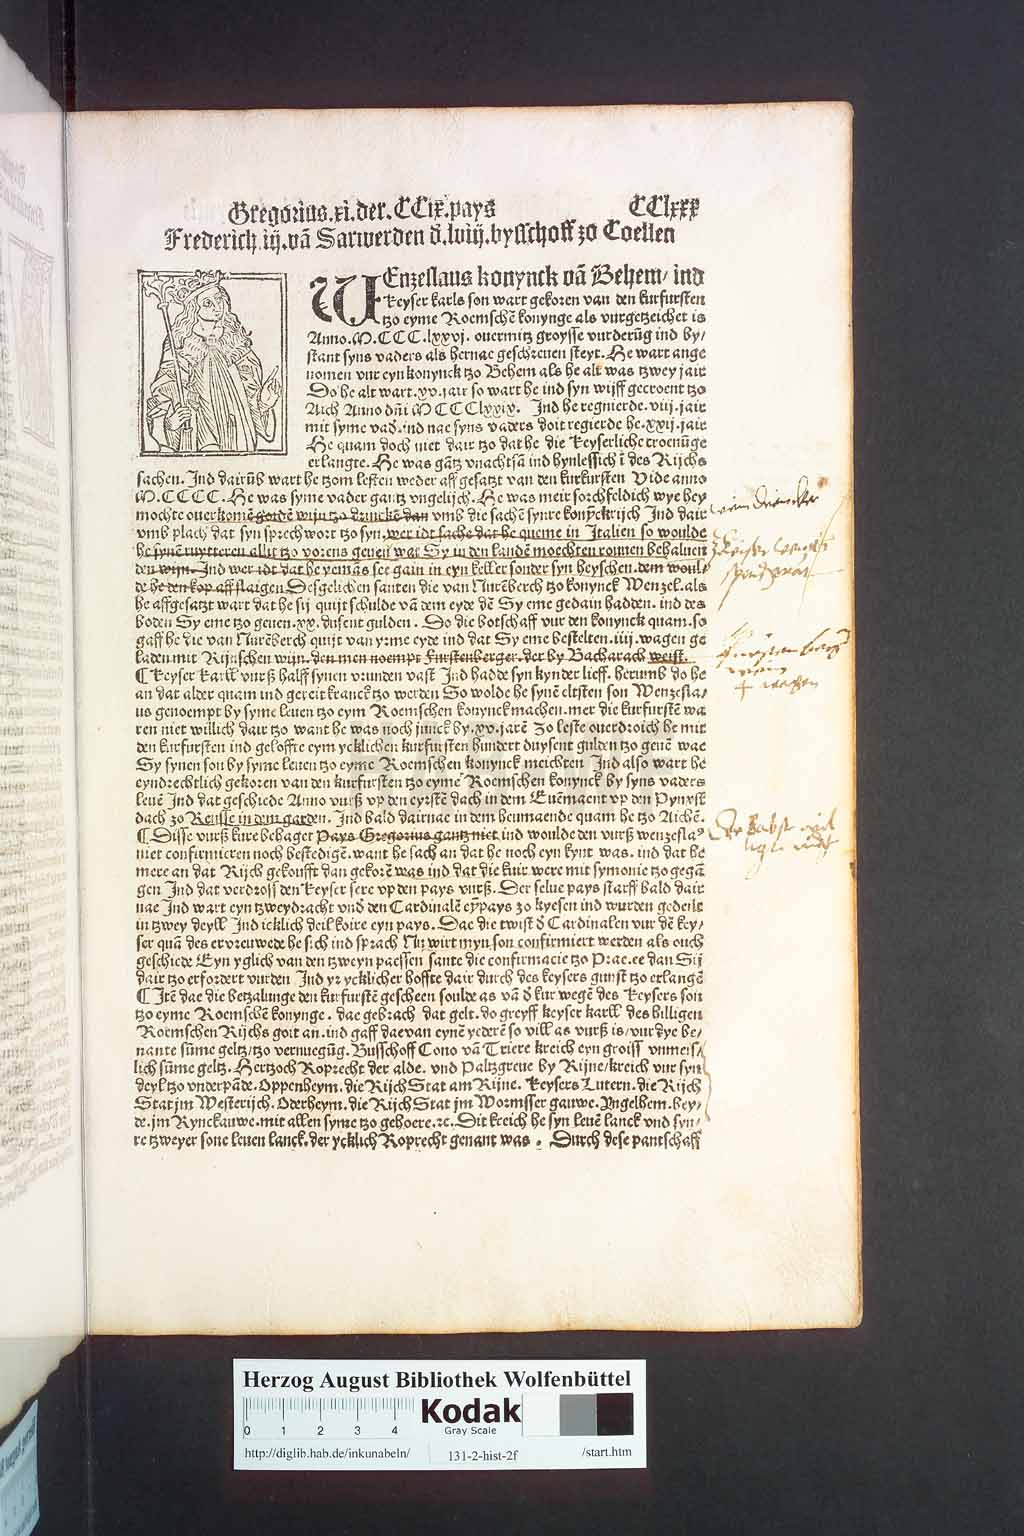 Gregorius.xi.der.CCix.pays CClxxx
Frederich.iij.vā Sarwerden d̄.lviij.bysschoff zo Coellen
WEnzeslaus konynck vā Behem/ ind
keyser karls son wart gekoren van den kurfursten
tzo eyme Roemschē konynge als vurgetzeichet is
Anno.M.CCC.lxxvj. ouermitz groysse vurderūg ind by/
stant syns vaders als hernae geschreuen steyt. He wart ange
nomen vur eyn konynck tzo Behem als he alt was tzwey jair
Do he alt wart.xv.jair so wart he ind syn wijff gecroent tzo
Aich Anno dn̄i MCCClxxix. Ind he regnierde.viij.jair
mit syme vad. ind nae syns vaders doit regierde he.xxij.jair
He quam doch niet dair tzo dat he die keyserliche croenūge
erlangte. He was gātz vnachtsā ind hynlessich ī des Rijchs
sachen. Ind dairūb wart he tzom lesten weder aff gesatzt van den kurkursten Vide anno
M.CCCC. He was syme vader gantz vngelijch. He was meir sorchfeldich wye hey
mochte ouerkomē goidē wijn tzo drinckē dan vmb die sachē synre konyckrijch Ind dair
vmb plach dat syn sprechwort tzo syn. wer idt sache dat he queme in Italien so woulde
he synē ruytteren allit tzo vorens geuen wat Sy in den landē moechten ronnen behaluen
den wijn. Ind wer idt dat he yemās see gain in eyn keller sonder syn heyschen. dem woul/
de he den kop aff slaigen Desgelichen santen die van Nurēberch tzo konynck Wenzel. als
he affgesatzt wart dat he sij quijt schulde vā dem eyde dē Sy eme gedain hadden. ind des
boden Sy eme tzo geuen.xx.dusent gulden. Do die botschaff vur den konynck quam. so
gaff he die van Nurēberch quijt van yrme eyde ind dat Sy eme bestelten.iiij.wagen ge
laden mit Rijnschen wijn. den men noempt Furstenberger. der by Bacharach weist.
¶ Keyser karll vurß halff synen vrunden vast Ind hadde syn kynder lieff. herumb do he
an dat alder quam ind gereit kranck tzo werden So wolde he synē eltsten son Wenzesla/
us genoempt by syme leuen tzo eym Roemschen konynck machen. mer die kurfurstē wa
ren niet willich dair tzo want he was noch junck by.xv.jarē Zo leste ouerdroich he mit
den kurfursten ind geloffte eym ycklichen kurfursten hundert duysent gulden tzo geuē wae
Sy synen son by syme leuen tzo eyme Roemschen konynck meichten Ind also wart he
eyndrechtlich gekoren van den kurfursten tzo eyme Roemschen konynck by syns vaders
leuē Ind dat geschiede Anno vurß vp den eyrstē dach in dem Euēmaent vp den Pynxst
dach zo Rensse in dem garden. Ind bald dairnae in dem heumaende quam he tzo Aichē.
¶ Disse vurß kure behager Pays Gregorius gantz niet ind woulde den vurß wenzeslaꝰ
niet confirmieren noch bestedigē. want he sach an dat he noch eyn kynt was. ind dat he
mere an dat Rijch gekoufft dan gekorē was ind dat die kuir were mit symonie tzo gegā
gen Ind dat verdross den keyser sere vp den pays vurß. Der selue pays starff bald dair
nae Ind wart eyn tzweydracht vnd̄ den Cardinalē eȳ pays zo kyesen ind wurden gedeilt
in tzwey deyll Ind icklich deil koire eyn pays. Dae die twist d̄ Cardinalen vur dē key/
ser quā des ervreuwede he sich ind sprach Nu wirt myn son confirmiert werden als ouch
geschiede Eyn yglich van den tzweyn paessen sante die confirmacie tzo Prae.ee dan Sij
dair tzo erfordert vurden Ind yr ycklicher hoffte dair durch des keysers gunst tzo erlangē
¶ Itē dae die betzalunge den kurfurstē gescheen soulde as vā d̄ kur wegē des keysers son
tzo eyme Roemschē konynge. dae gebrach dat gelt. do greyff keyser karll des hilligen
Roemschen Rijchs goit an. ind gaff dae van eynē yederē so vill as vurß is/vur dye be/
nante sūme geltz/tzo vernuegūg. Busschoff Cono vā Triere kreich eyn groiss vnmeis/
lich sūme geltz. Hertzoch Roprecht der alde. vnd Paltzgreue by Rijne/kreich vur syn
deyl tzo vnderpāde. Oppenheym. die Rijch Stat am Rijne. Keysers Lutern. die Rijch
Stat jm Westerijch. Oderheym. die Rijch Stat jm Wormsser gauwe. Yngelhem. bey/
de. jm Rynckauwe. mit allen syme tzo gehoere.ꝛc. Dit kreich he syn leuē lanck vnd syn/
re tzweyer sone leuen lanck. der ycklich Roprecht genant was. Durch dese pantschaff
wein drincker
Keiser
wein
wagen
Der Babst
Herzog August Bibliothek Wolfenbüttel
0 1 2 3 4
Kodak
Gray Scale
http://diglib.hab.de/inkunabeln/ 131-2-hist-2f /start.htm